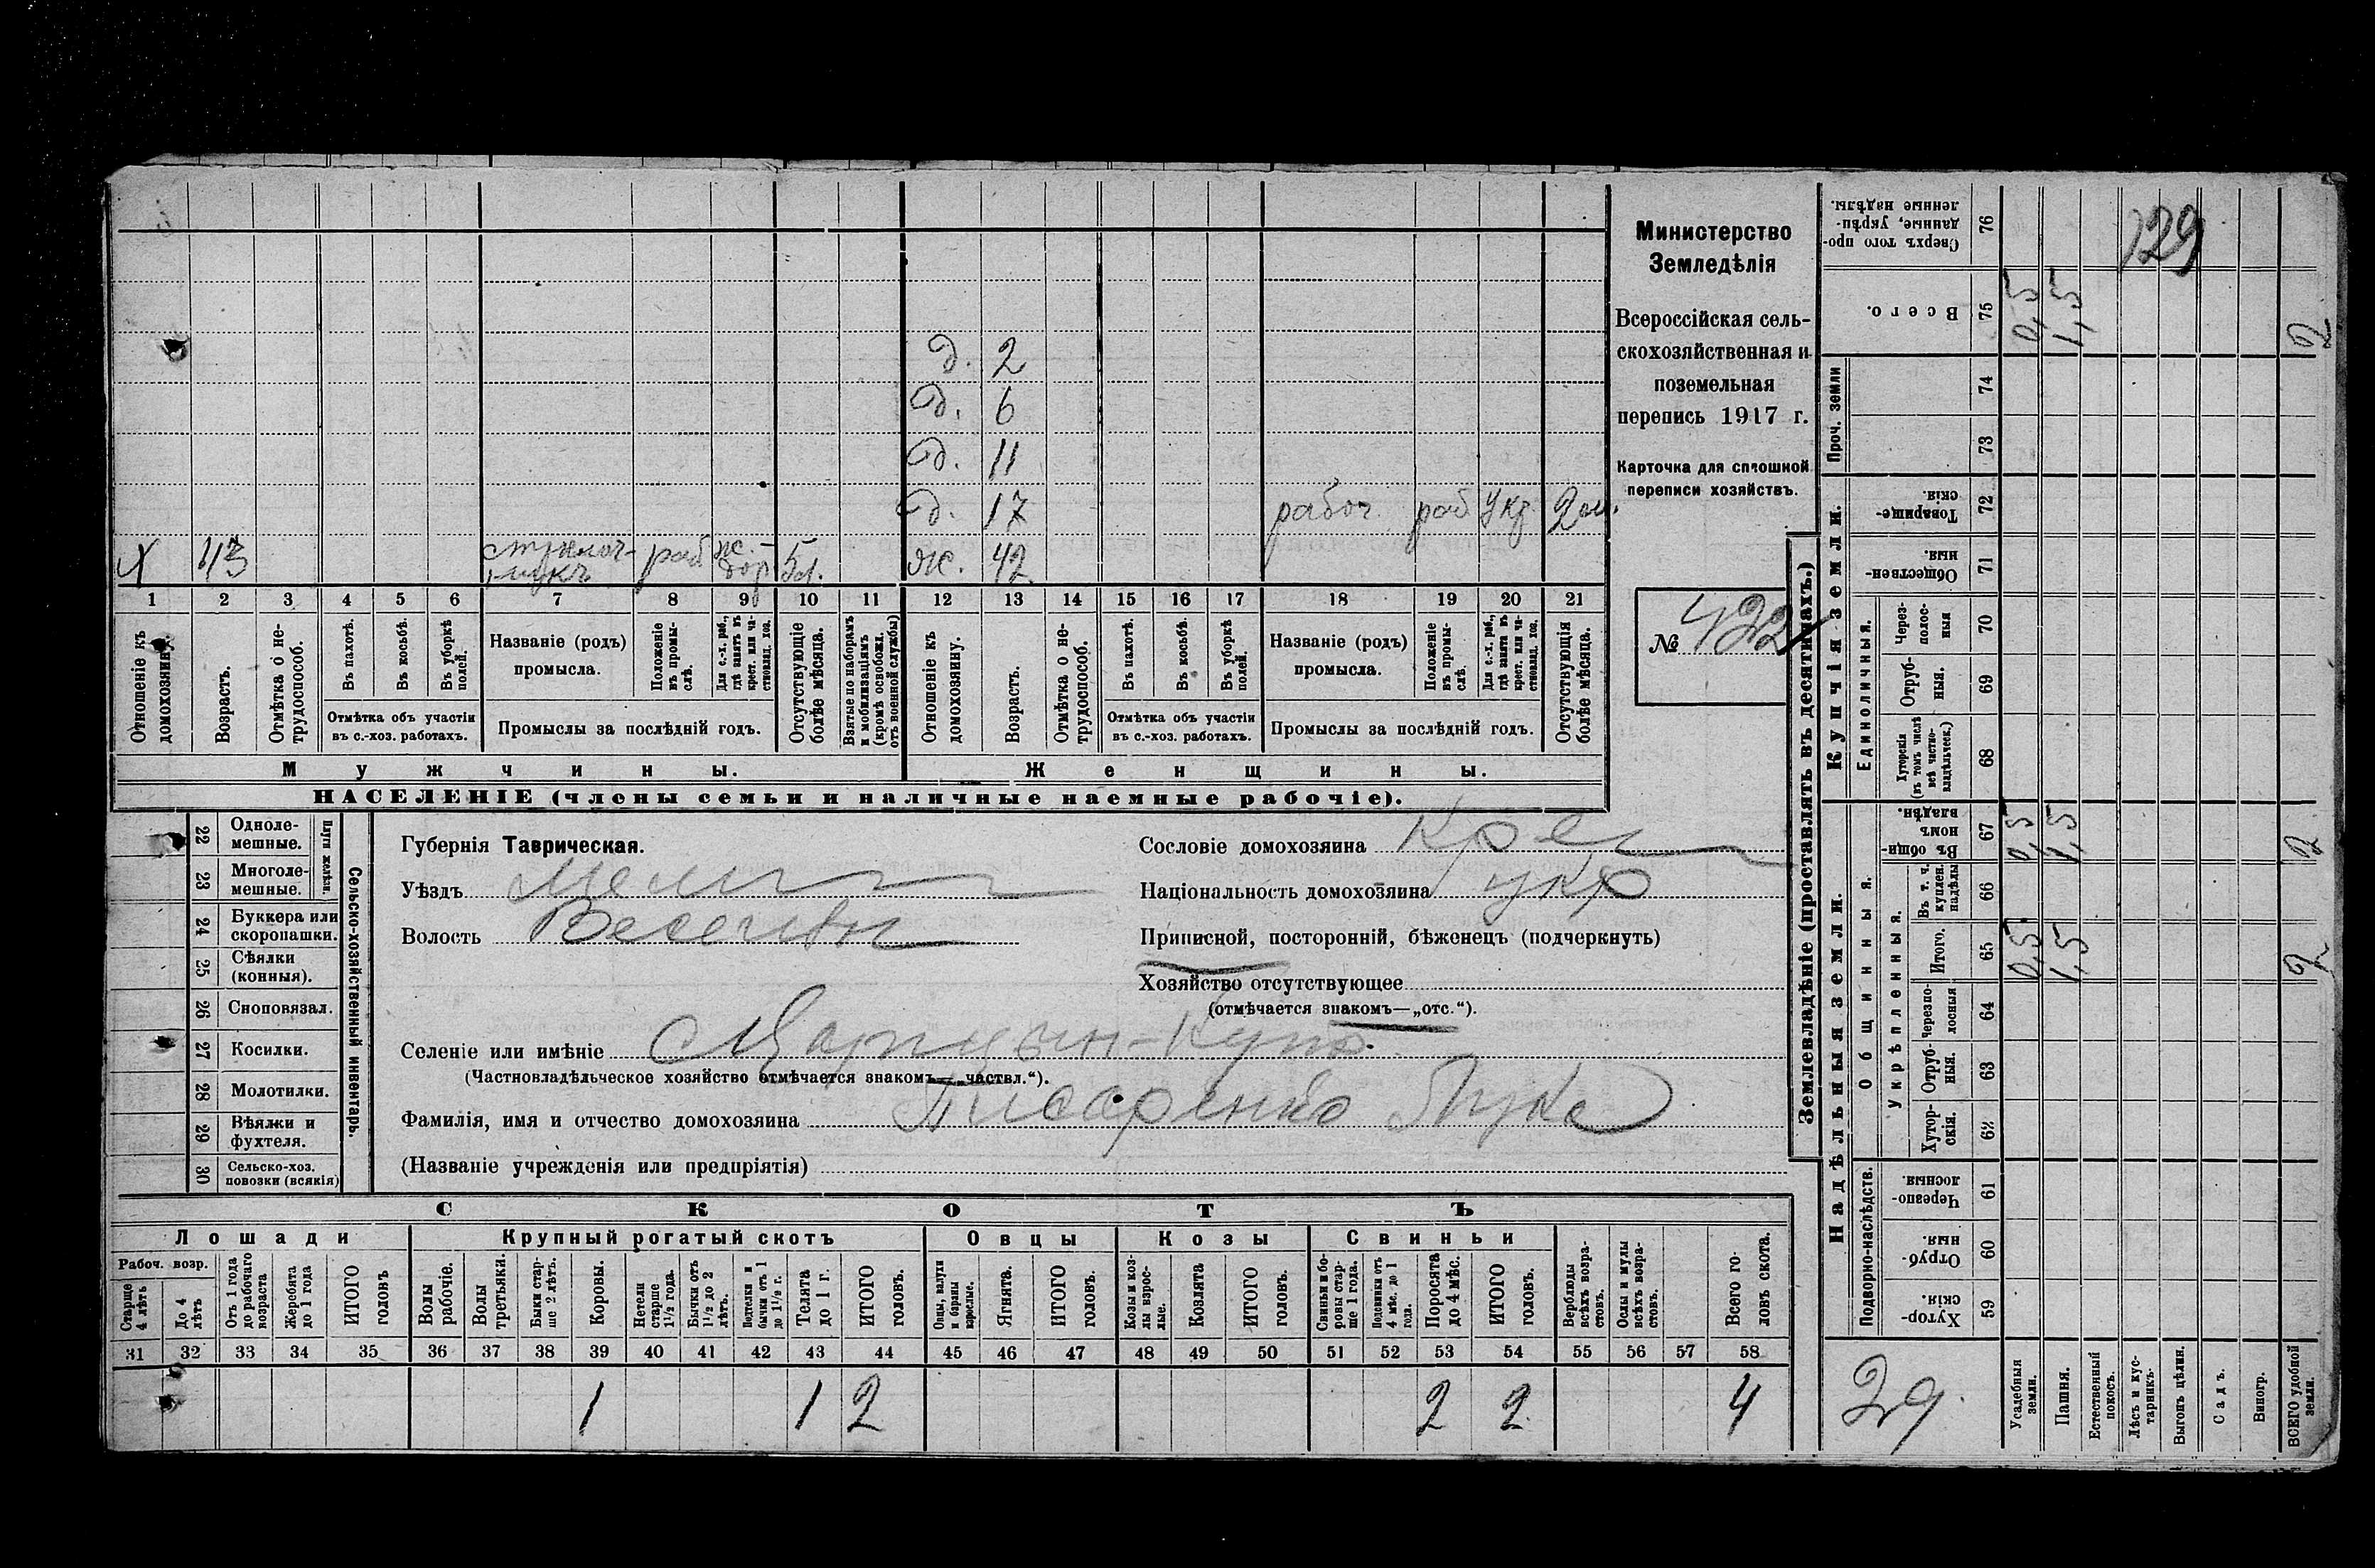 Министерство
Земледѣлія
Всероссійская сель-
скохозяйственная и
поземельная
перепись 1917 г.
Карточка для сплошной
переписи хозяйствъ.
№ 422
д. 2
д. 6
д. 11
д. 17 рабоч. раб 2 м.
Х 43 раб ж.- дор ж. 42
1 2 3 4 5 6 7 8 9 10 11 12 13 14 15 16 17 18 19 20 21
Отношеніе къ домохозяину.
Возрастъ.
Отмѣтка о не-трудоспособ.
Въ пахотѣ.
Въ косьбѣ.
Въ уборкѣ полей.
Отмѣтка объ участіи
въ с.-хоз. работахъ.
Названіе (родъ)
промысла.
Положеніе въ промы-слѣ.
Для с.-х. раб., гдѣ занятъ въ крест. или ча-стновлад. хоз.
Промыслы за послѣдній годъ.
Отсутствующіе болѣе мѣсяца.
Взятые по наборамъ и мобилизаціямъ (кромѣ освобожд. отъ военной службы)
Отношеніе къ домохозяину.
Возрастъ.
Отмѣтка о не-трудоспособ.
Въ пахотѣ.
Въ косьбѣ.
Въ уборкѣ полей.
Отмѣтка объ участіи
въ с.-хоз. работахъ.
Названіе (родъ)
промысла.
Положеніе въ промы-слѣ.
Для с.-х. раб., гдѣ занята въ крест. или ча-стновлад. хоз.
Промыслы за послѣдній годъ.
Отсутствующія болѣе мѣсяца.
Мужчины.
Женщины.
НАСЕЛЕНІЕ (члены семьи и наличные наемные рабочіе).
Сельско-хозяйственный инвентарь.
Плуги желѣзн.
22 Одноле-мешные.
23 Многоле-мешные.
24 Буккера или скоропашки.
25 Сѣялки (конныя).
26 Сноповязал.
27 Косилки.
28 Молотилки.
29 Вѣялки и фухтеля.
30 Сельско-хоз. повозки (всякія)
Губернія Таврическая.
Уѣздъ Мели
Волость
Селеніе или имѣніе
(Частновладѣльческое хозяйство отмѣчается знакомъ—„частвл.“).
Фамилія, имя и отчество домохозяина Писаренко Лука
(Названіе учрежденія или предпріятія)
Сословіе домохозяина Крес
Національность домохозяина укр
Приписной, посторонній, бѣженецъ (подчеркнуть)
Хозяйство отсутствующее
(отмѣчается знакомъ—„отс.“).
СКОТЪ
Лошади
Крупный рогатый скотъ
Овцы
Козы
Свиньи
Рабоч. возр.
Старше 4 лѣтъ
До 4 лѣтъ
Отъ 1 года до рабочаго возраста
Жеребята до 1 года
ИТОГО головъ
Волы рабочіе.
Волы третьяки.
Быки стар-ше 2 лѣтъ.
Коровы.
Нетели старше 1½ года.
Бычки отъ 1½ до 2 лѣтъ.
Подтелки и бычки отъ 1 до 1½ г.
Телята до 1 г.
ИТОГО головъ.
Овцы, валухи и бараны взрослые.
Ягнята.
ИТОГО головъ.
Козы и коз-лы взрос-лые.
Козлята
ИТОГО головъ.
Свиньи и бо-ровы стар-ше 1 года.
Подсвинки отъ 4 мѣс. до 1 года.
Поросята до 4 мѣс.
ИТОГО головъ.
Верблюды всѣхъ возра-стовъ.
Ослы и мулы всѣхъ возра-стовъ.
Всего го-ловъ скота.
31 32 33 34 35 36 37 38 39 40 41 42 43 44 45 46 47 48 49 50 51 52 53 54 55 56 57 58
1 1 2 2 2 4
Землевладѣніе (проставлять въ десятинахъ.)
Надѣльныя земли.
Купчія земли.
Проч. земли
Подворно-наслѣдств.
Общинныя.
Укрѣпленныя.
Единоличныя.
Сверхъ того про-данные, укрѣп-ленные надѣлы. 76
Всего. 75 0,5 1,5 2
74
73
Товарище-скія. 72
Обществен-ныя. 71
Через-полос-ныя 70
Отруб-ныя. 69
Хуторскія (въ томъ числѣ всѣ частно-владѣльческ.) 68
Въ общи-номъ владѣн. 67 0,5 1,5 2
Въ т. ч. куплен. надѣлы 66
Итого. 65 0,5 1,5 2
Черезпо-лосныя 64
Отруб-ныя. 63
Хутор-скія. 62
Черезпо-лосныя. 61
Отруб-ныя. 60
Хутор-скія. 59
129
29
Усадебныя земли.
Пашня.
Естественный покосъ.
Лѣсъ и кус-тарникъ.
Выгонъ цѣлин.
Садъ.
Виногр.
ВСЕГО удобной земли.